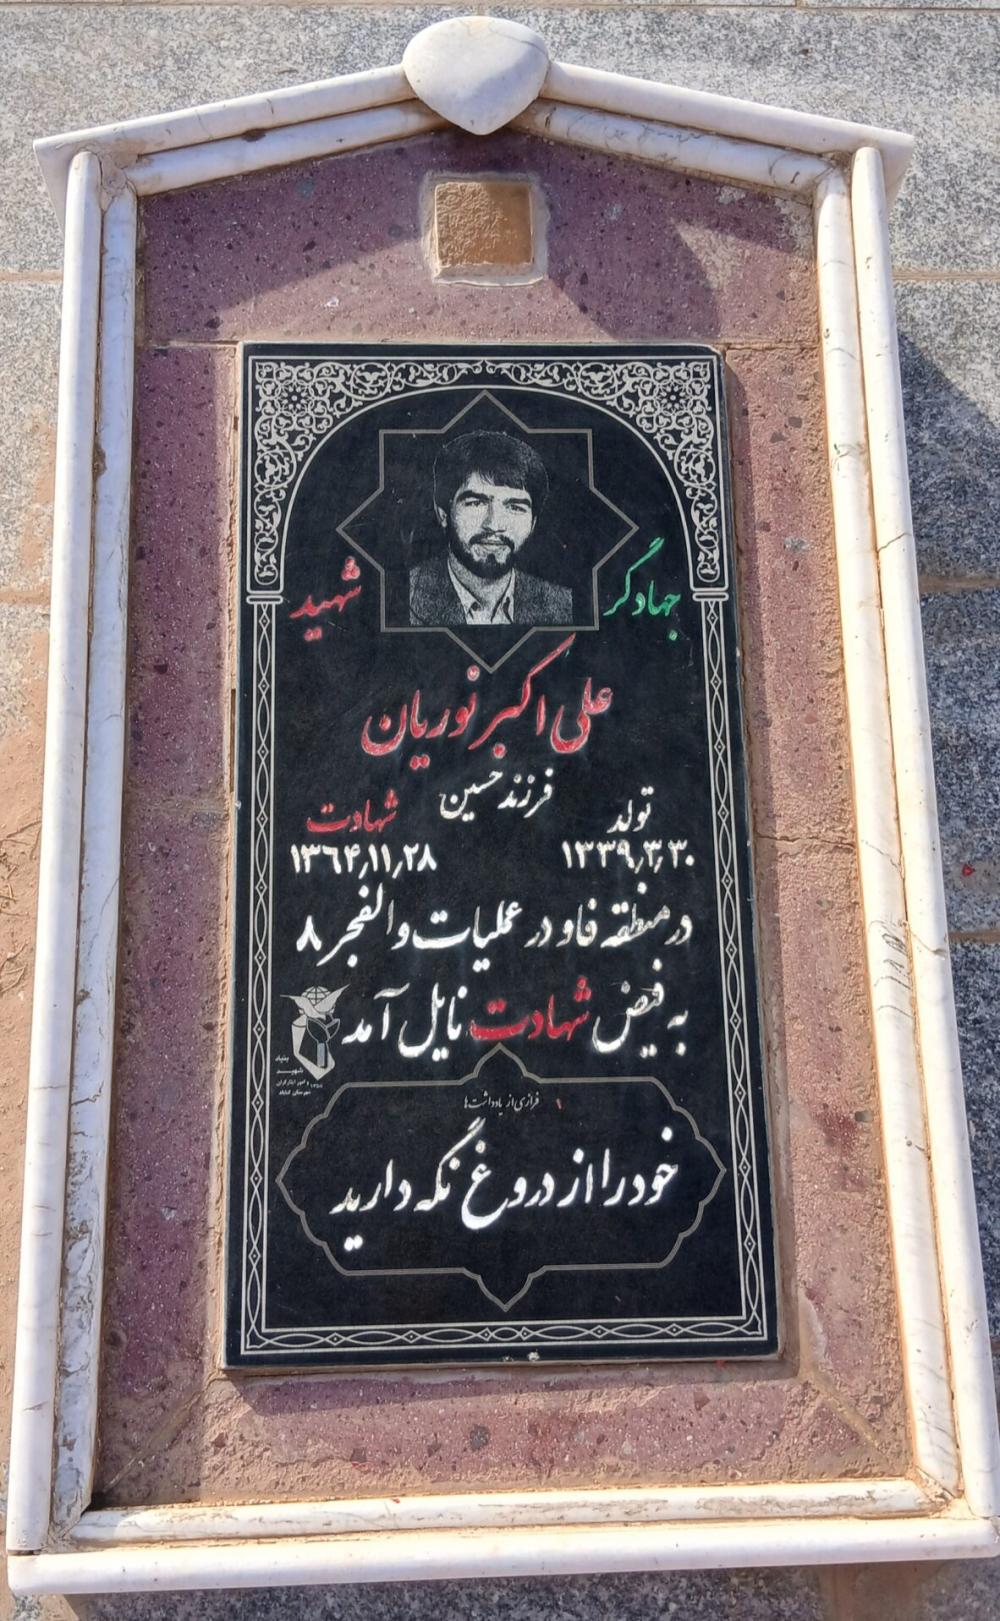 جهادگر شهید
علی اکبر نوریان
فرزند حسین
تولد شهادت
۱۳۳۹٫۳٫۳۰ ۱۳۶۴٫۱۱٫۲۸
در منطقه فاو در عملیات والفجر ۸
به فیض شهادت نایل آمد
بنیاد
شهید
و امور ایثارگران
شهرستان گناباد
فرازی از یادداشت‌ها
خود را از دروغ نگه دارید